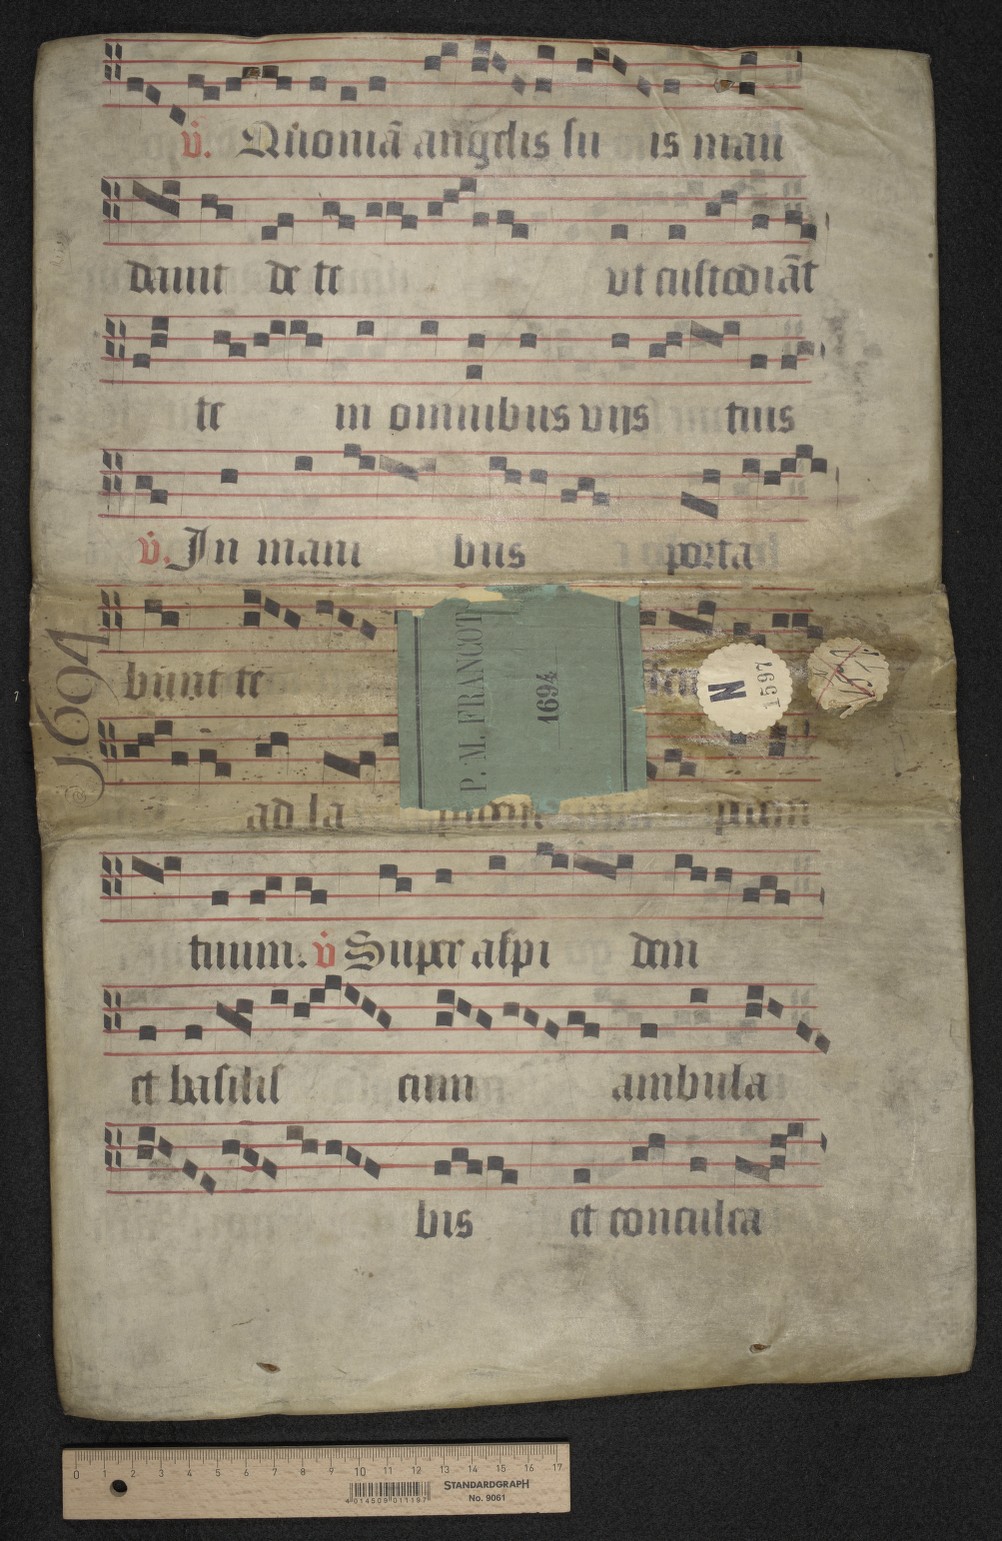 v̇. Quoniā angelis su is man
dauit de te ut custodiāt
te in omnibus viis tuis
v̇. In mani bus porta
bunt te
1694
P. M. FRANCOT.
1694
N
1597
ad la
tuum. v̇ Super aspi dem
et basilis cum ambula
bis et conculca
0 1 2 3 4 5 6 7 8 9 10 11 12 13 14 15 16 17
STANDARDGRAPH
No. 9061
4 014509 011197